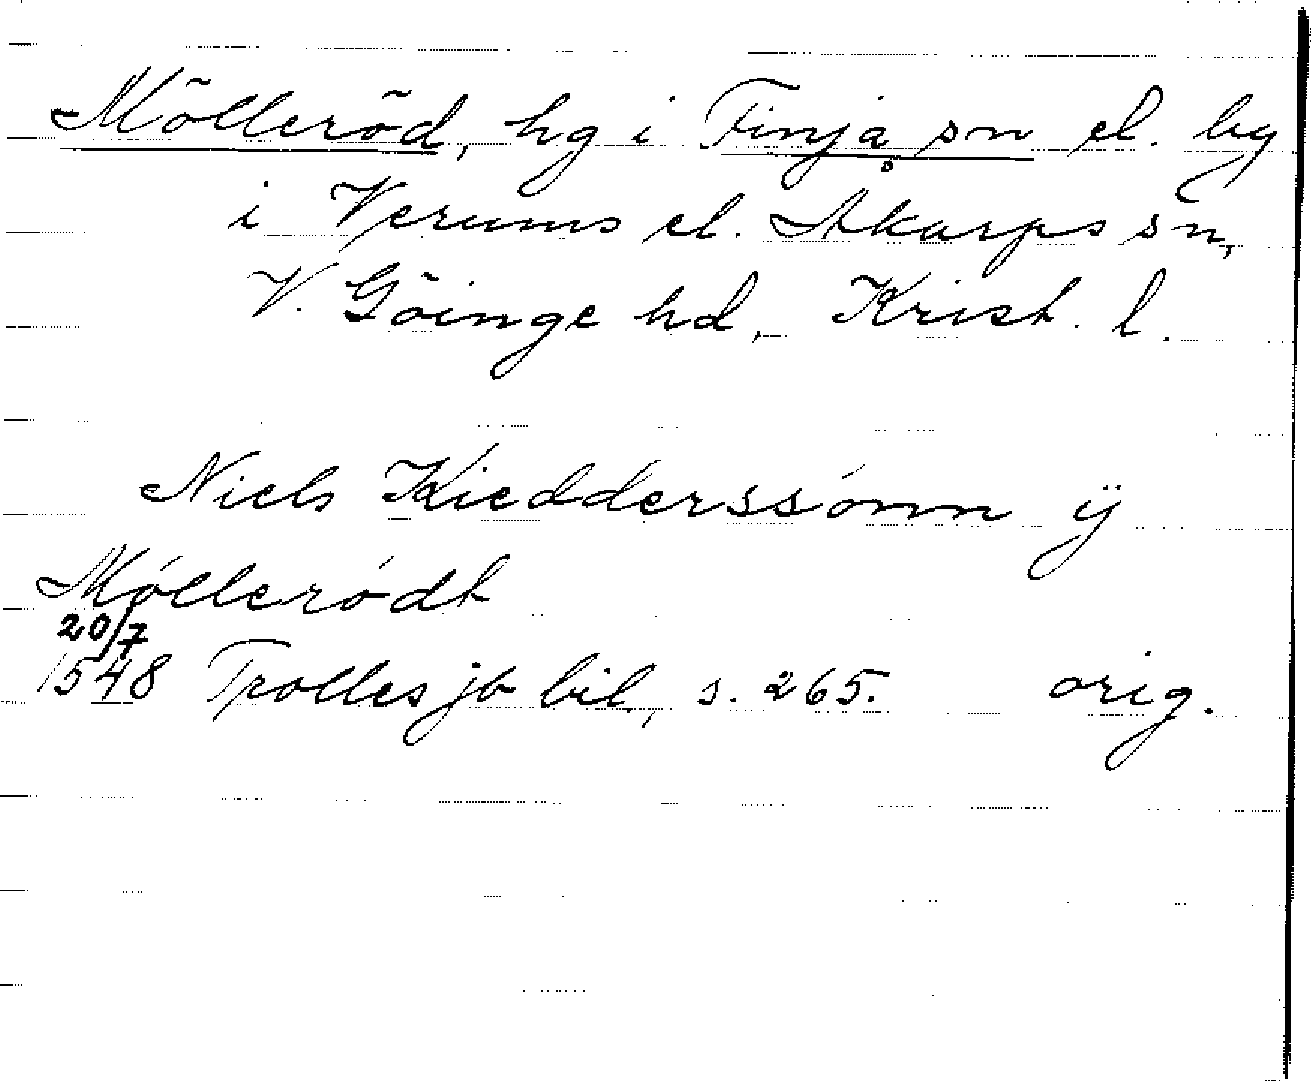 Mölleröd, hg i Finja sn el. by
i Verums el. Åkarps sn,
V. Göinge hd, Krist. l.
Niels Kiedderssónn ÿ
Mólleródt
20/7
1548 Trolles jb bil., s. 265. orig.